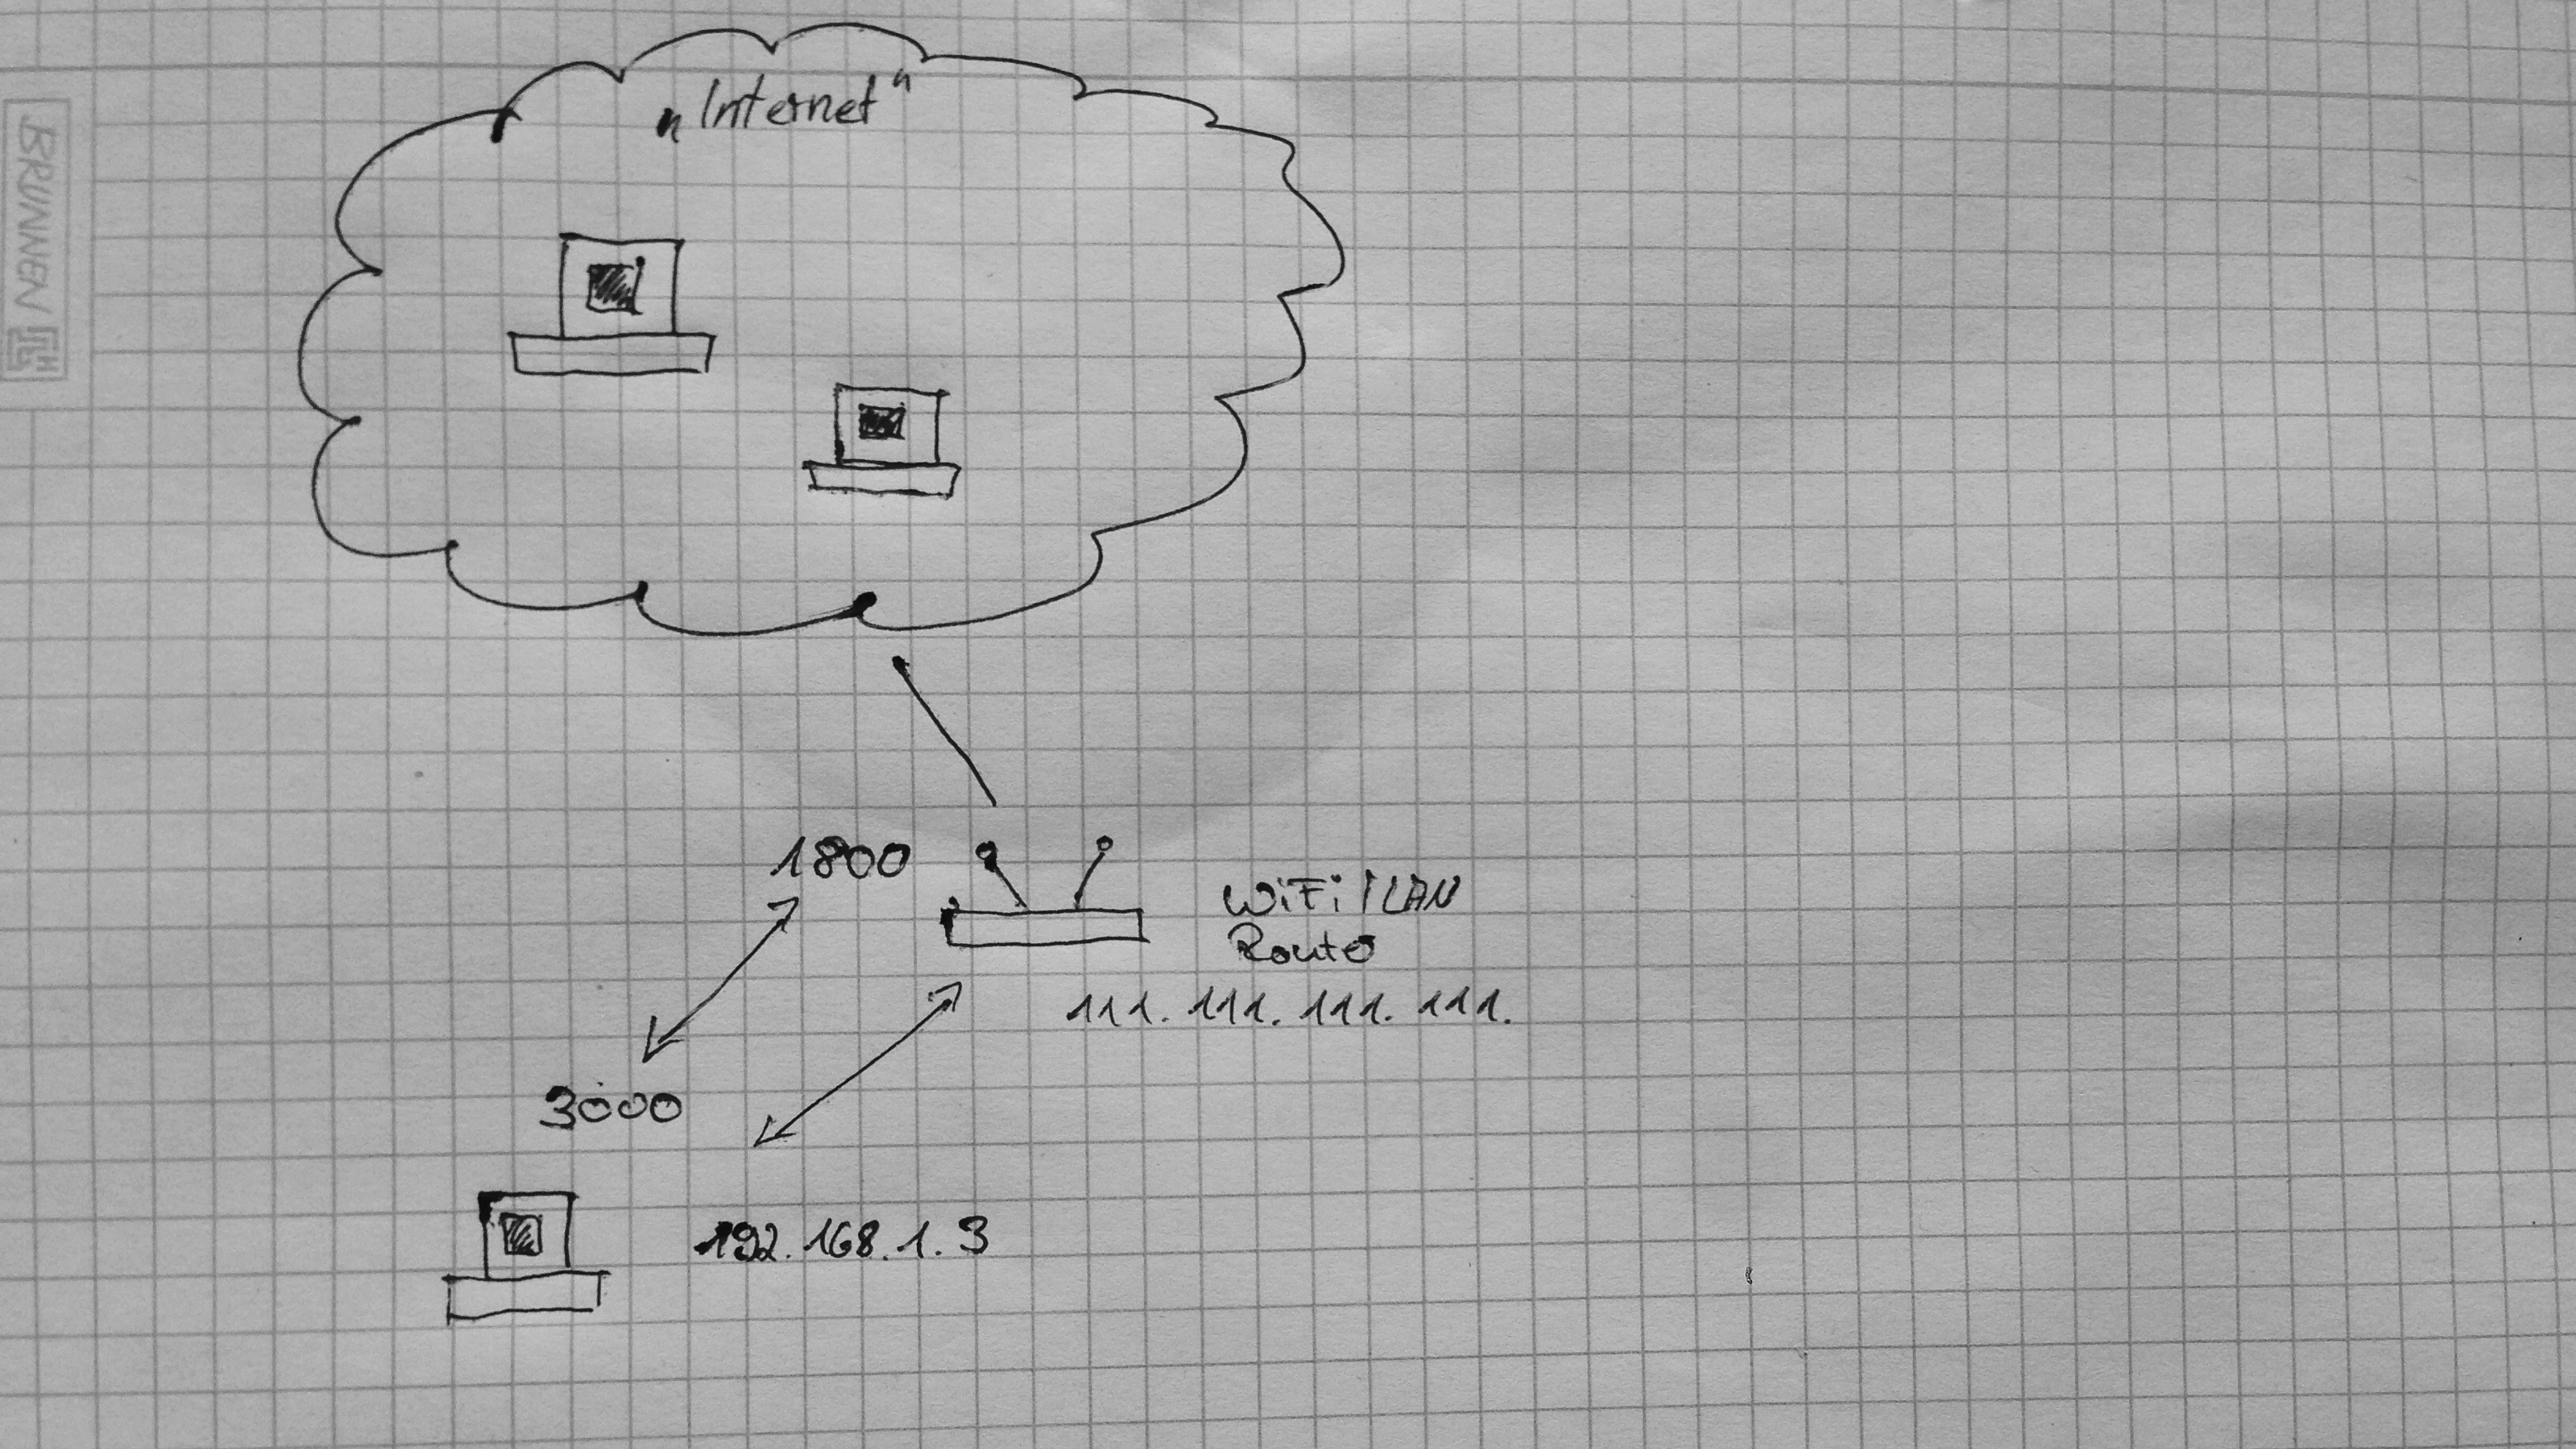 BRUNNEN
„Internet"
1800
WiFi / LAN
Router
111. 111. 111. 111.
3000
192.168.1.3